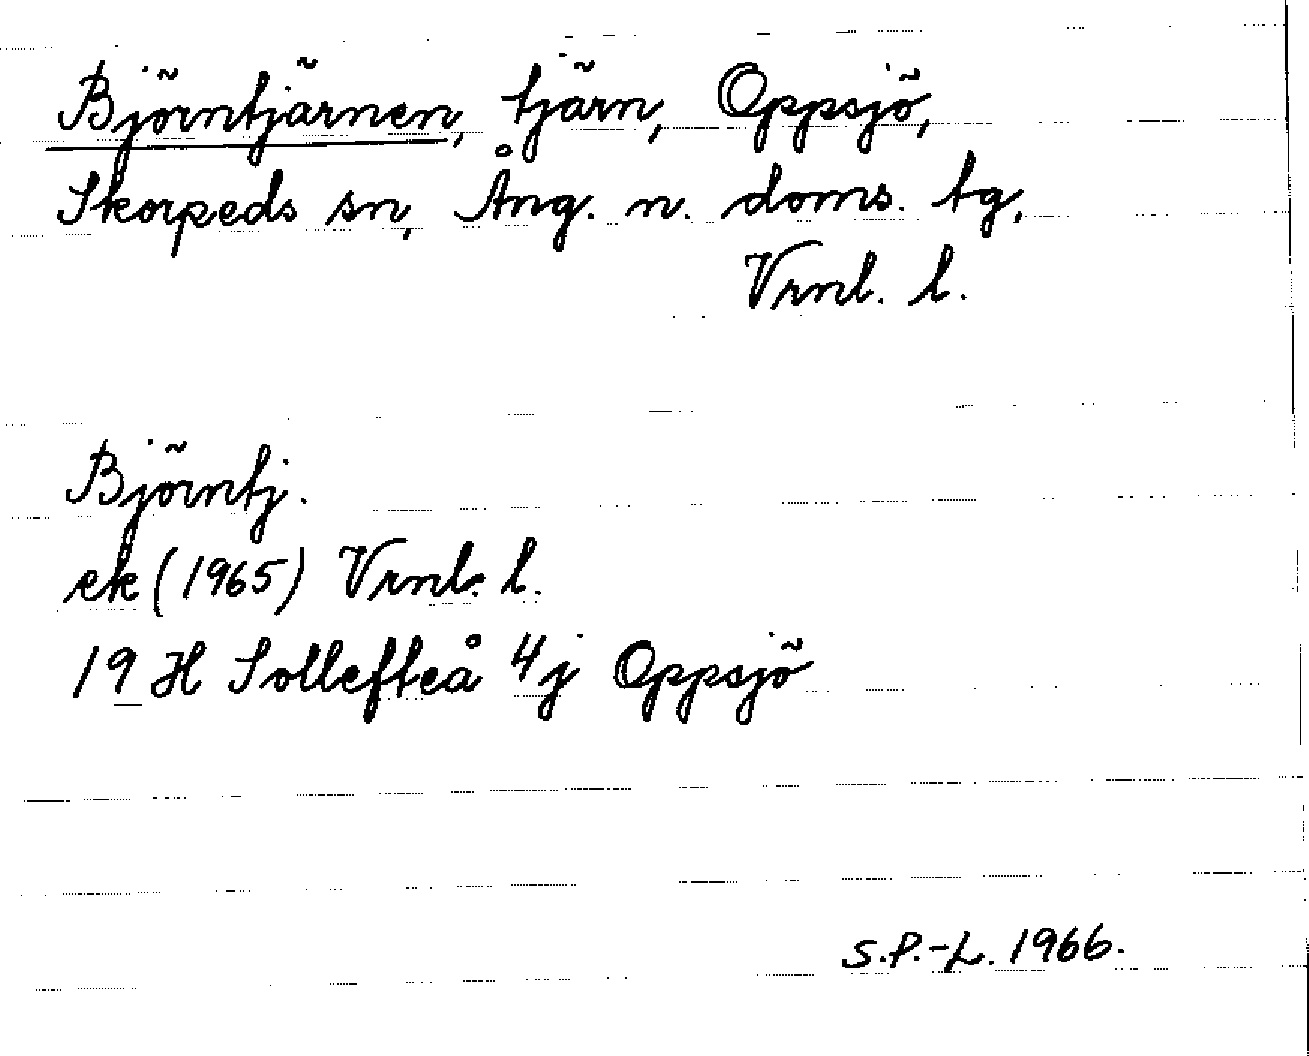 Björntjärnen, tjärn, Oppsjö,
Skorpeds sn, Ång. n. doms. tg,
Vrnl. l.
Björntj.
ek (1965) Vrnl. l.
19 H Sollefteå 4j Oppsjö
S.P.-L. 1966.